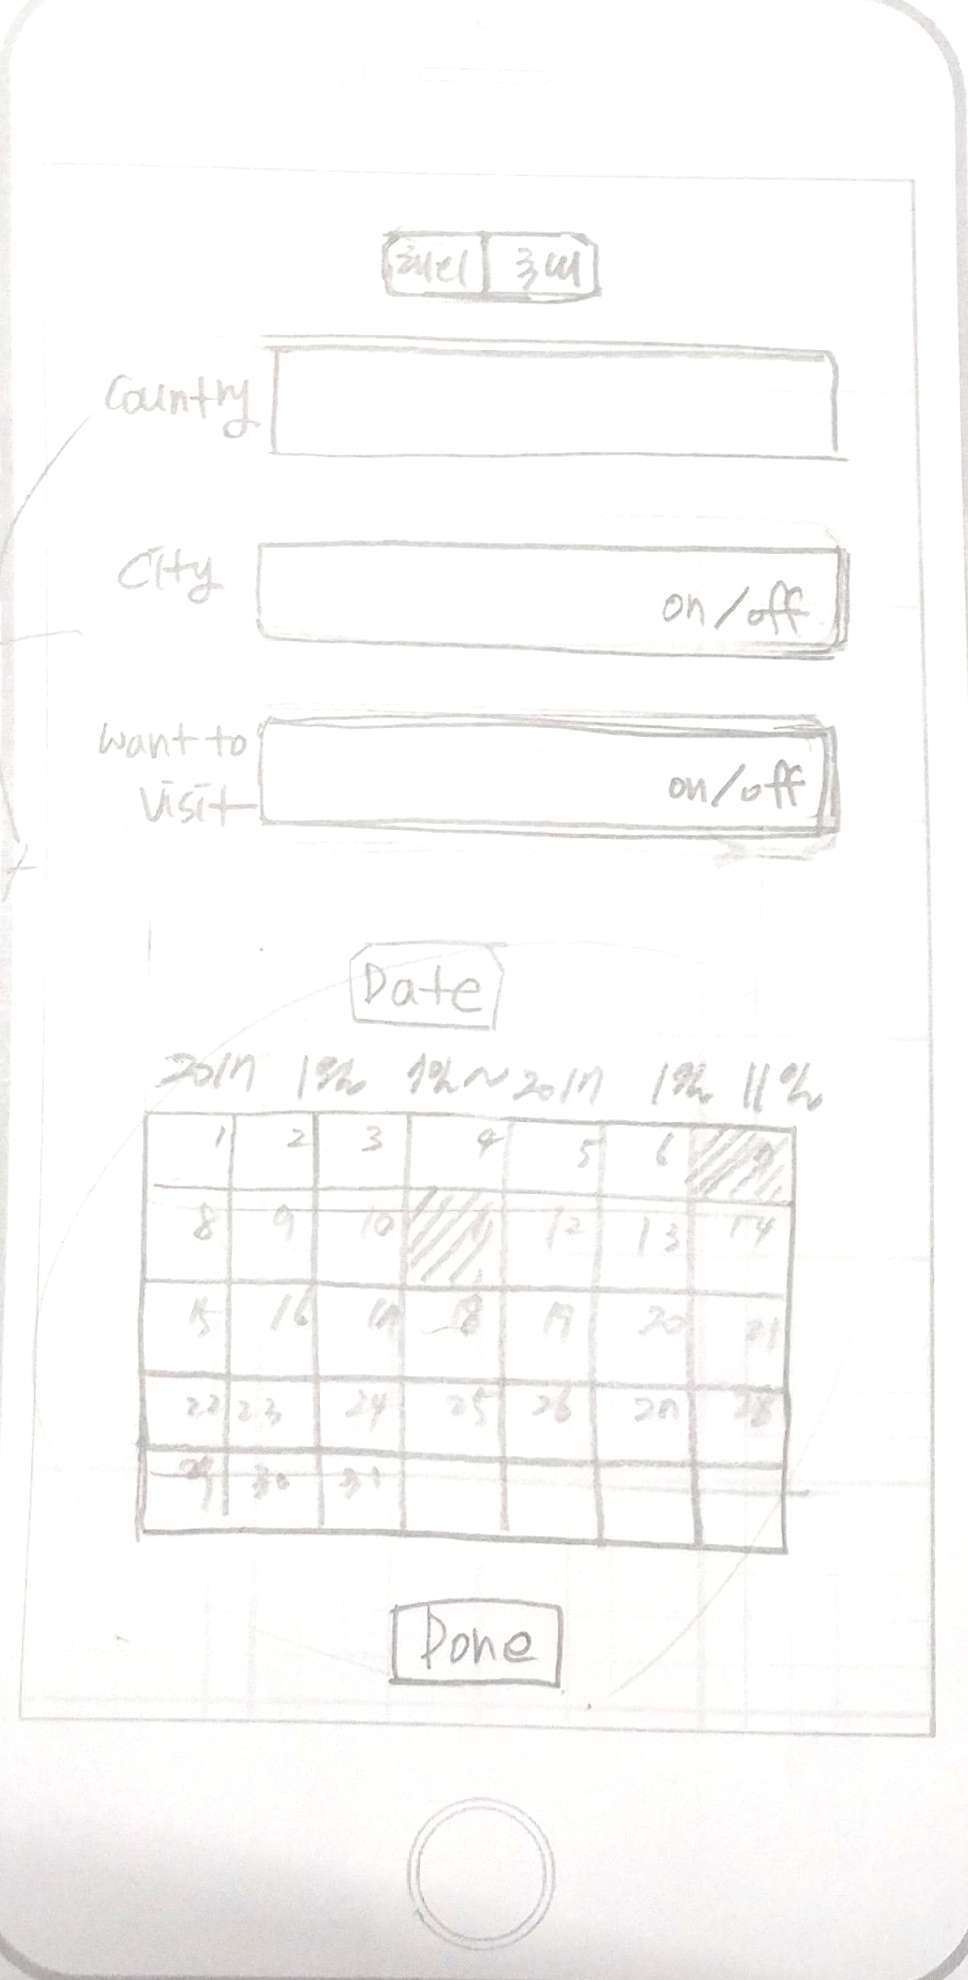 해외 국내
Country
City
on/off
want to
visit
on/off
Date
2017 1월 7일~2017 1월 11일
1 2 3 4 5 6 7
8 9 10 12 13 14
15 16 17 18 19 20 21
22 23 24 25 26 27 28
29 30 31
Done